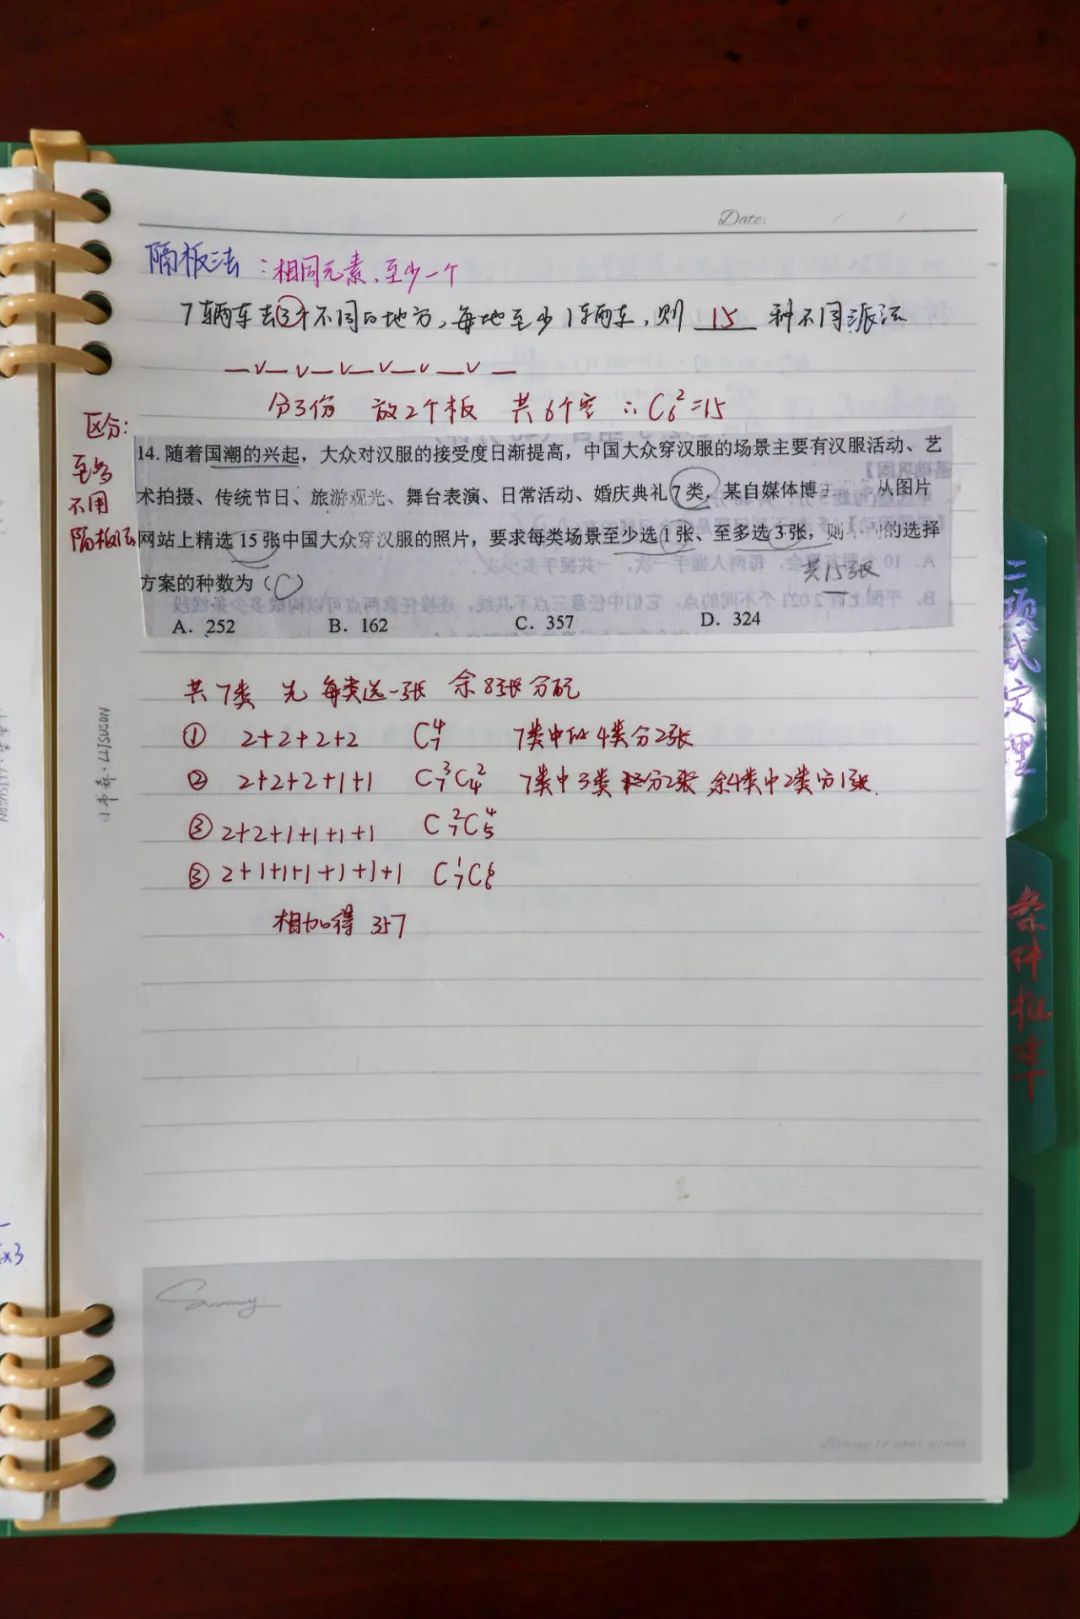 Date: / /
隔板法：相同元素、至少一个
7辆车去3个不同的地方，每地至少1辆车，则 15 种不同派法
分3份 放2个板 共6个空 ∴C₆²=15
区分：
至多
不用
隔板法
14. 随着国潮的兴起，大众对汉服的接受度日渐提高，中国大众穿汉服的场景主要有汉服活动、艺
术拍摄、传统节日、旅游观光、舞台表演、日常活动、婚庆典礼7类，某自媒体博 从图片
网站上精选15张中国大众穿汉服的照片，要求每类场景至少选1张、至多选3张，则不同的选择
共15张
方案的种数为（C）
A. 252 B. 162 C. 357 D. 324
共7类 先每类选一张 余8张分配
① 2+2+2+2 C₇⁴ 7类中的4类分2张
② 2+2+2+1+1 C₇³C₄² 7类中3类分2张 余4类中2类分1张.
③ 2+2+1+1+1+1 C₇²C₅⁴
③ 2+1+1+1+1+1+1 C₇¹C₆⁶
相加得 357
二项式定理
条件概率
×3
Sammy